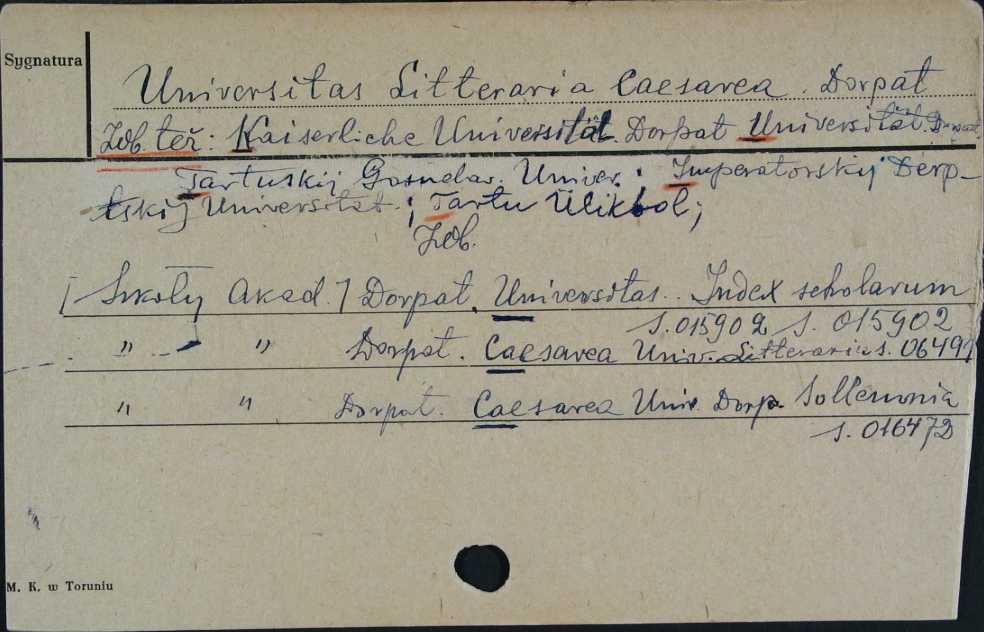 Sygnatura
Universitas Litteraria Caesarea. Dorpat
Zob. też: Kaiserliche Universität Dorpat Universität. Dorpat
Tartuskij Gosudar. Univer.; Imperatorskij Derp-
tskij Universitet.; Tartu Ülikool;
Zob.
[Szkoły Akad.] Dorpat. Universitas. Index scholarum
S. 015902 S. 015902
" " Dorpat. Caesarea Univ. Litteraria s. 06499
" " Dorpat. Caesarea Univ. Dorp. Sollemnia
s. 016472
M. K. w Toruniu